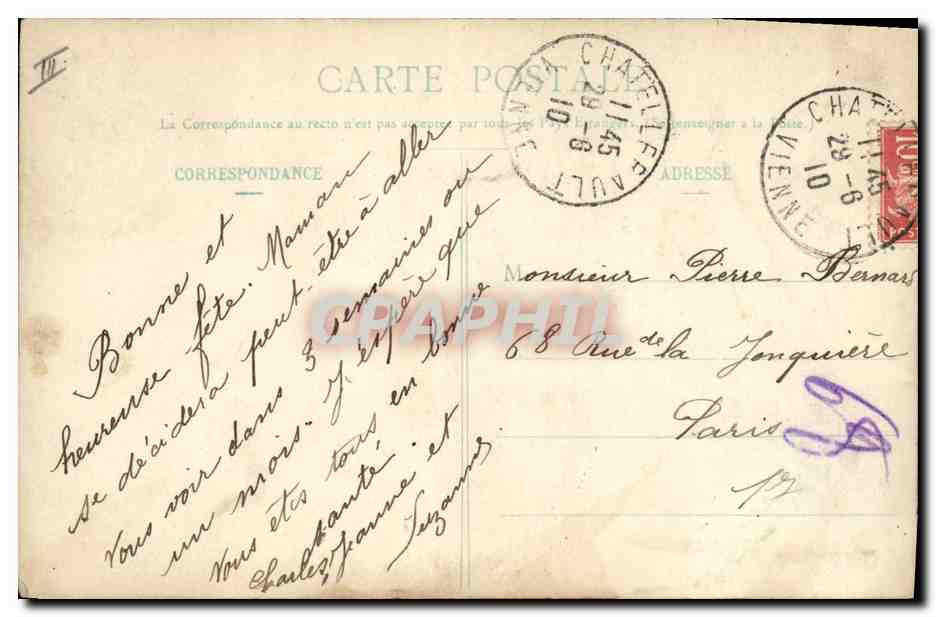 III.
CARTE POSTALE
La Correspondance au recto n'est pas acceptée par tous les Pays Etrangers. (Se renseigner à la Poste.)
CORRESPONDANCE
ADRESSE
Bonne et
heureuse fête. Maman
se décidera peut-être à aller
vous voir dans 3 semaines ou
un mois. J'espère que
vous êtes tous en bonne
santé.
Charles, Jeanne et
Suzanne
Monsieur Pierre Bernard
68 Rue de la Jonquière
Paris
17
CHATELLERAULT
11.45
29-6
10
VIENNE
CHATELLERAULT
11.45
29-6
10
VIENNE
10c
CRAPHIL